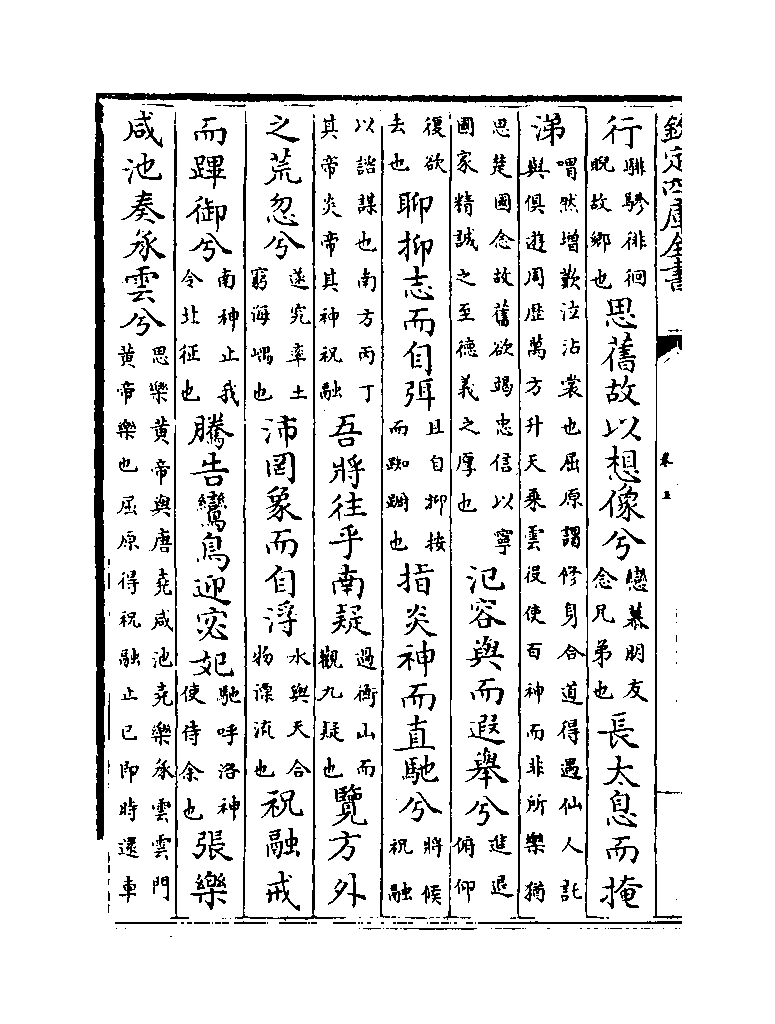 欽定四庫全書 卷五
行騑驂徘徊睨故鄉也思舊故以想像兮戀慕朋友念兄弟也長大息而掩
涕喟然增歎泣沾裳也屈原謂修身合道得遇仙人託與俱遊周歴萬方升天乗雲役使百神而非所樂猶
思楚國念故舊欲竭忠信以寧國家精誠之至德義之厚也氾容與而遐舉兮進退俯仰
復欲去也聊抑志而自弭且自抑按而踟躕也指炎神而直馳兮將候祝融
以諮謀也南方丙丁其帝炎帝其神祝融吾將往乎南疑過衡山而觀九疑也覽方外
之荒忽兮遂究率土窮海嵎也沛罔象而自浮水與天合物漂流也祝融戒
而蹕御兮南神止我令北征也騰告鸞鳥迎宓妃馳呼洛神使侍余也張樂
咸池奏承雲兮思樂黄帝與唐堯咸池堯樂承雲雲門黄帝樂也屈原得祝融止已即時還車